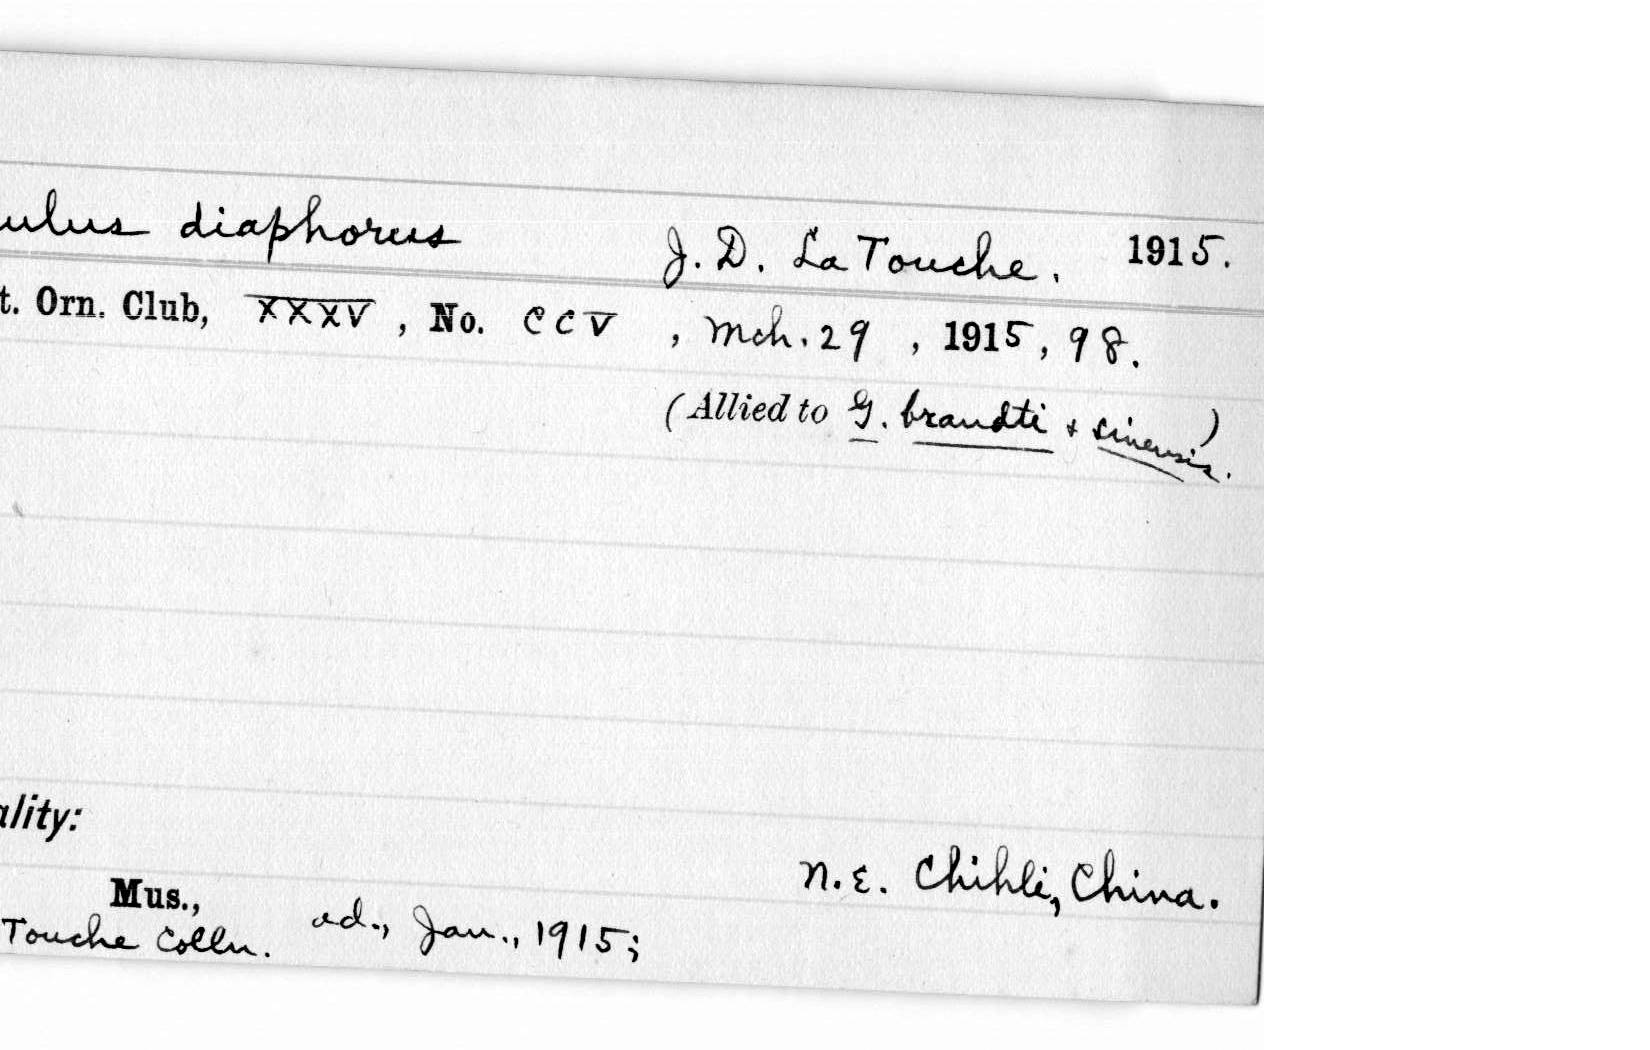 ulus diaphorus J. D. La Touche. 1915.
t. Orn. Club, XXXV, No. CCV, Mch. 29, 1915, 98.
(Allied to G. brandti & sinensis.)
ality:
N. E. Chihli, China.
Mus.,
Touche Colln. ad., Jan., 1915;